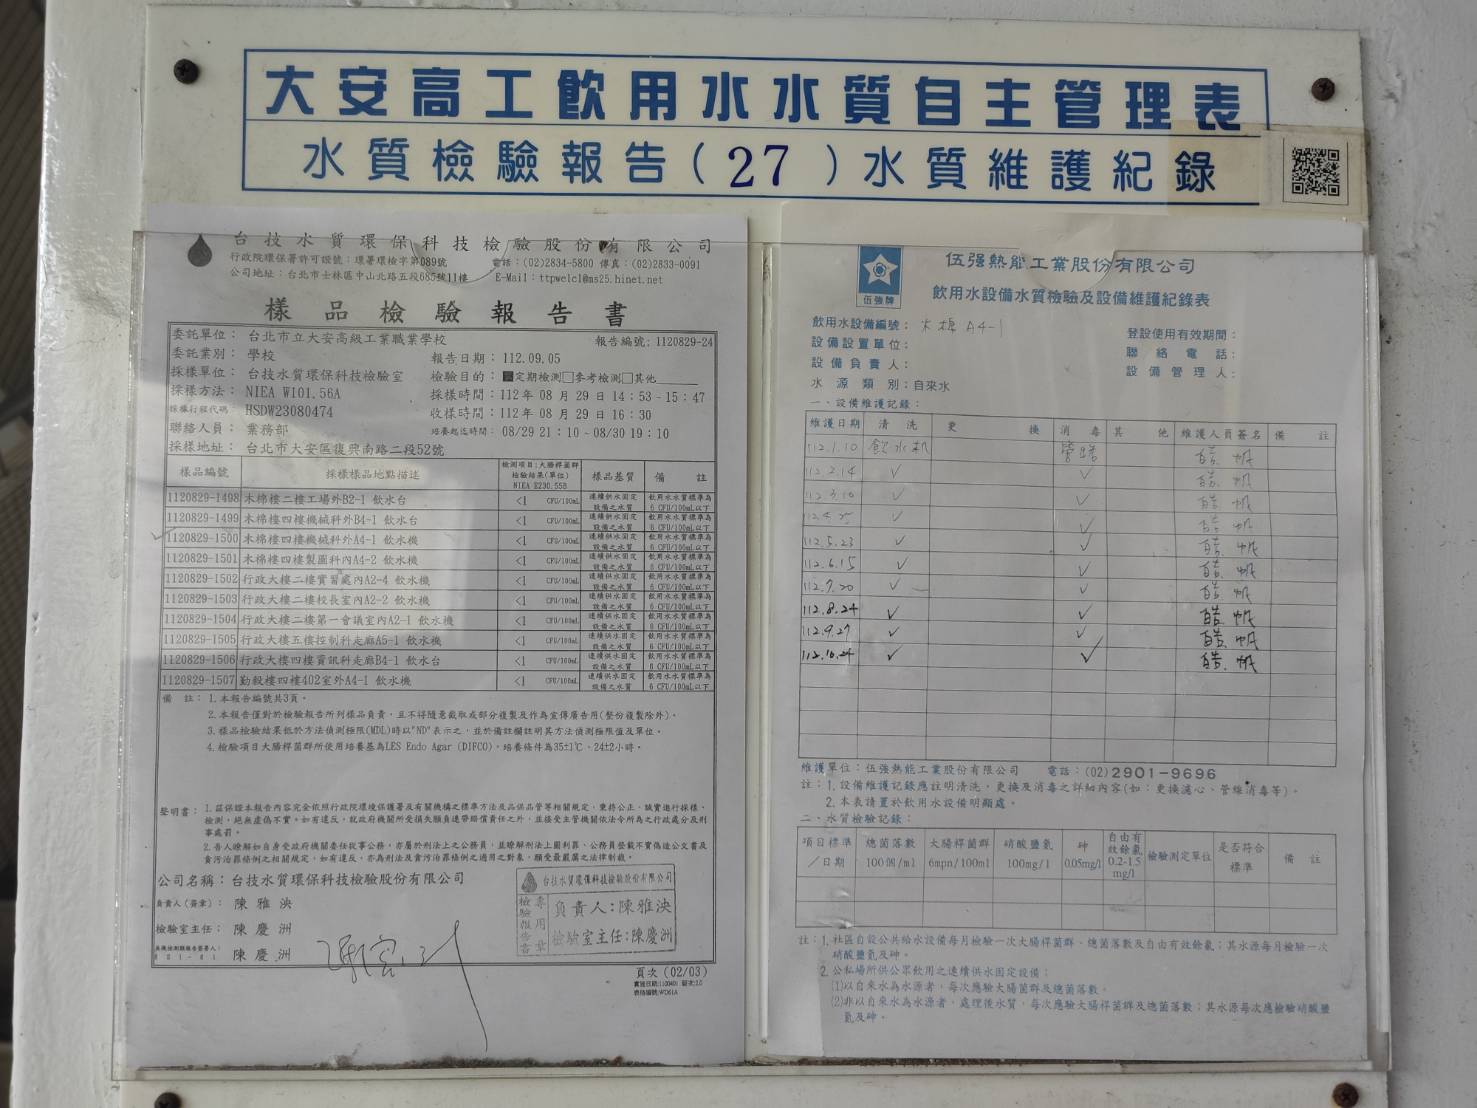 大安高工飲用水水質自主管理表
水質檢驗報告(27)水質維護紀錄
台技水質環保科技檢驗股份有限公司
行政院環保署許可證號：環署環檢字第089號 電話：(02)2834-5800 傳真：(02)2833-0091
公司地址：台北市士林區中山北路五段685號11樓 E-Mail：ttpwelcl@ms25.hinet.net
樣品檢驗報告書
委託單位： 台北市立大安高級工業職業學校 報告編號：1120829-24
委託業別： 學校 報告日期：112.09.05
採樣單位： 台技水質環保科技檢驗室 檢驗目的：■定期檢測□參考檢測□其他
採樣方法： NIEA W101.56A 採樣時間：112年 08 月 29 日 14：53-15：47
採樣行程代碼 HSDW23080474 收樣時間：112年 08 月 29 日 16：30
聯絡人員： 業務部 培養起迄時間： 08/29 21：10-08/30 19：10
採樣地址： 台北市大安區復興南路二段52號
樣品編號 採樣樣品地點描述 檢測項目:大腸桿菌群 檢驗結果(單位) NIEA E230.55B 樣品基質 備 註
1120829-1498 木棉樓二樓工場外B2-1 飲水台 <1 CFU/100mL 連續供水固定設備之水質 飲用水水質標準為6 CFU/100mL以下
1120829-1499 木棉樓四樓機械科外B4-1 飲水台 <1 CFU/100mL 連續供水固定設備之水質 飲用水水質標準為6 CFU/100mL以下
1120829-1500 木棉樓四樓機械科外A4-1 飲水機 <1 CFU/100mL 連續供水固定設備之水質 飲用水水質標準為6 CFU/100mL以下
1120829-1501 木棉樓四樓製圖科內A4-2 飲水機 <1 CFU/100mL 連續供水固定設備之水質 飲用水水質標準為6 CFU/100mL以下
1120829-1502 行政大樓二樓實習處內A2-4 飲水機 <1 CFU/100mL 連續供水固定設備之水質 飲用水水質標準為6 CFU/100mL以下
1120829-1503 行政大樓二樓校長室內A2-2 飲水機 <1 CFU/100mL 連續供水固定設備之水質 飲用水水質標準為6 CFU/100mL以下
1120829-1504 行政大樓二樓第一會議室內A2-1 飲水機 <1 CFU/100mL 連續供水固定設備之水質 飲用水水質標準為6 CFU/100mL以下
1120829-1505 行政大樓五樓控制科走廊A5-1 飲水機 <1 CFU/100mL 連續供水固定設備之水質 飲用水水質標準為6 CFU/100mL以下
1120829-1506 行政大樓四樓資訊科走廊B4-1 飲水台 <1 CFU/100mL 連續供水固定設備之水質 飲用水水質標準為6 CFU/100mL以下
1120829-1507 勤毅樓四樓402室外A4-1 飲水機 <1 CFU/100mL 連續供水固定設備之水質 飲用水水質標準為6 CFU/100mL以下
備 註：1.本報告編號共3頁。
2.本報告僅對於檢驗報告所列樣品負責，且不得隨意截取或部分複製及作為宣傳廣告用(整份複製除外)。
3.樣品檢驗結果低於方法偵測極限(MDL)時以"ND"表示之，並於備註欄註明其方法偵測極限值及單位。
4.檢驗項目大腸桿菌群所使用培養基為LES Endo Agar (DIFCO)，培養條件為35±1℃、24±2小時。
聲明書：1.茲保證本報告內容完全依照行政院環境保護署及有關機構之標準方法及品保品管等相關規定，秉持公正、誠實進行採樣，
檢測，絕無虛偽不實。如有違反，就政府機關所受損失願負連帶賠償責任之外，並接受主管機關依法令所為之行政處分及刑
事處罰。
2.吾人瞭解如自身受政府機關委任從事公務，亦屬於刑法上之公務員，並瞭解刑法上圖利罪、公務員登載不實偽造公文書及
貪污治罪條例之相關規定，如有違反，亦為刑法及貪污治罪條例之適用之對象，願受最嚴厲之法律制裁。
公司名稱：台技水質環保科技檢驗股份有限公司
負責人(簽章)： 陳雅泱
檢驗室主任： 陳慶洲
陳慶洲
台技水質環保科技檢驗股份有限公司
檢驗報告書專用章
負責人：陳雅泱
檢驗室主任：陳慶洲
頁次 (02/03)
伍強牌
伍强熱能工業股份有限公司
飲用水設備水質檢驗及設備維護紀錄表
飲用水設備編號： 木棉 A4-1 登設使用有效期間：
設備設置單位： 聯絡電話：
設備負責人： 設備管理人：
水源類別：自來水
一、設備維護記錄：
維護日期 清洗 更換 消毒 其他 維護人員簽名 備註
112.1.10 飲水机 管路
112.2.14 ✓ ✓
112.3.10 ✓ ✓
112.4.25 ✓ ✓
112.5.23 ✓ ✓
112.6.15 ✓ ✓
112.7.20 ✓ ✓
112.8.24 ✓ ✓
112.9.27 ✓ ✓
112.10.24 ✓ ✓
維護單位：伍强熱能工業股份有限公司 電話：(02)2901-9696
註：1.設備維護記錄應註明清洗，更換及消毒之詳細內容(如：更換濾心、管線消毒等)。
2.本表請置於飲用水設備明顯處。
二、水質檢驗記錄：
項目標準/日期 總菌落數 100個/ml 大腸桿菌群 6mpn/100ml 硝酸鹽氮 100mg/l 砷 0.05mg/l 自由有效餘氯 0.2-1.5 mg/l 檢驗測定單位 是否符合標準 備註
註：1.社區自設公共給水設備每月檢驗一次大腸桿菌群、總菌落數及自由有效餘氯；其水源每月檢驗一次
硝酸鹽氮及砷。
2.公私場所供公眾飲用之連續供水固定設備：
(1)以自來水為水源者，每次應驗大腸菌群及總菌落數。
(2)非以自來水為水源者，處理後水質，每次應驗大腸桿菌群及總菌落數；其水源每次應檢驗硝酸鹽
氮及砷。